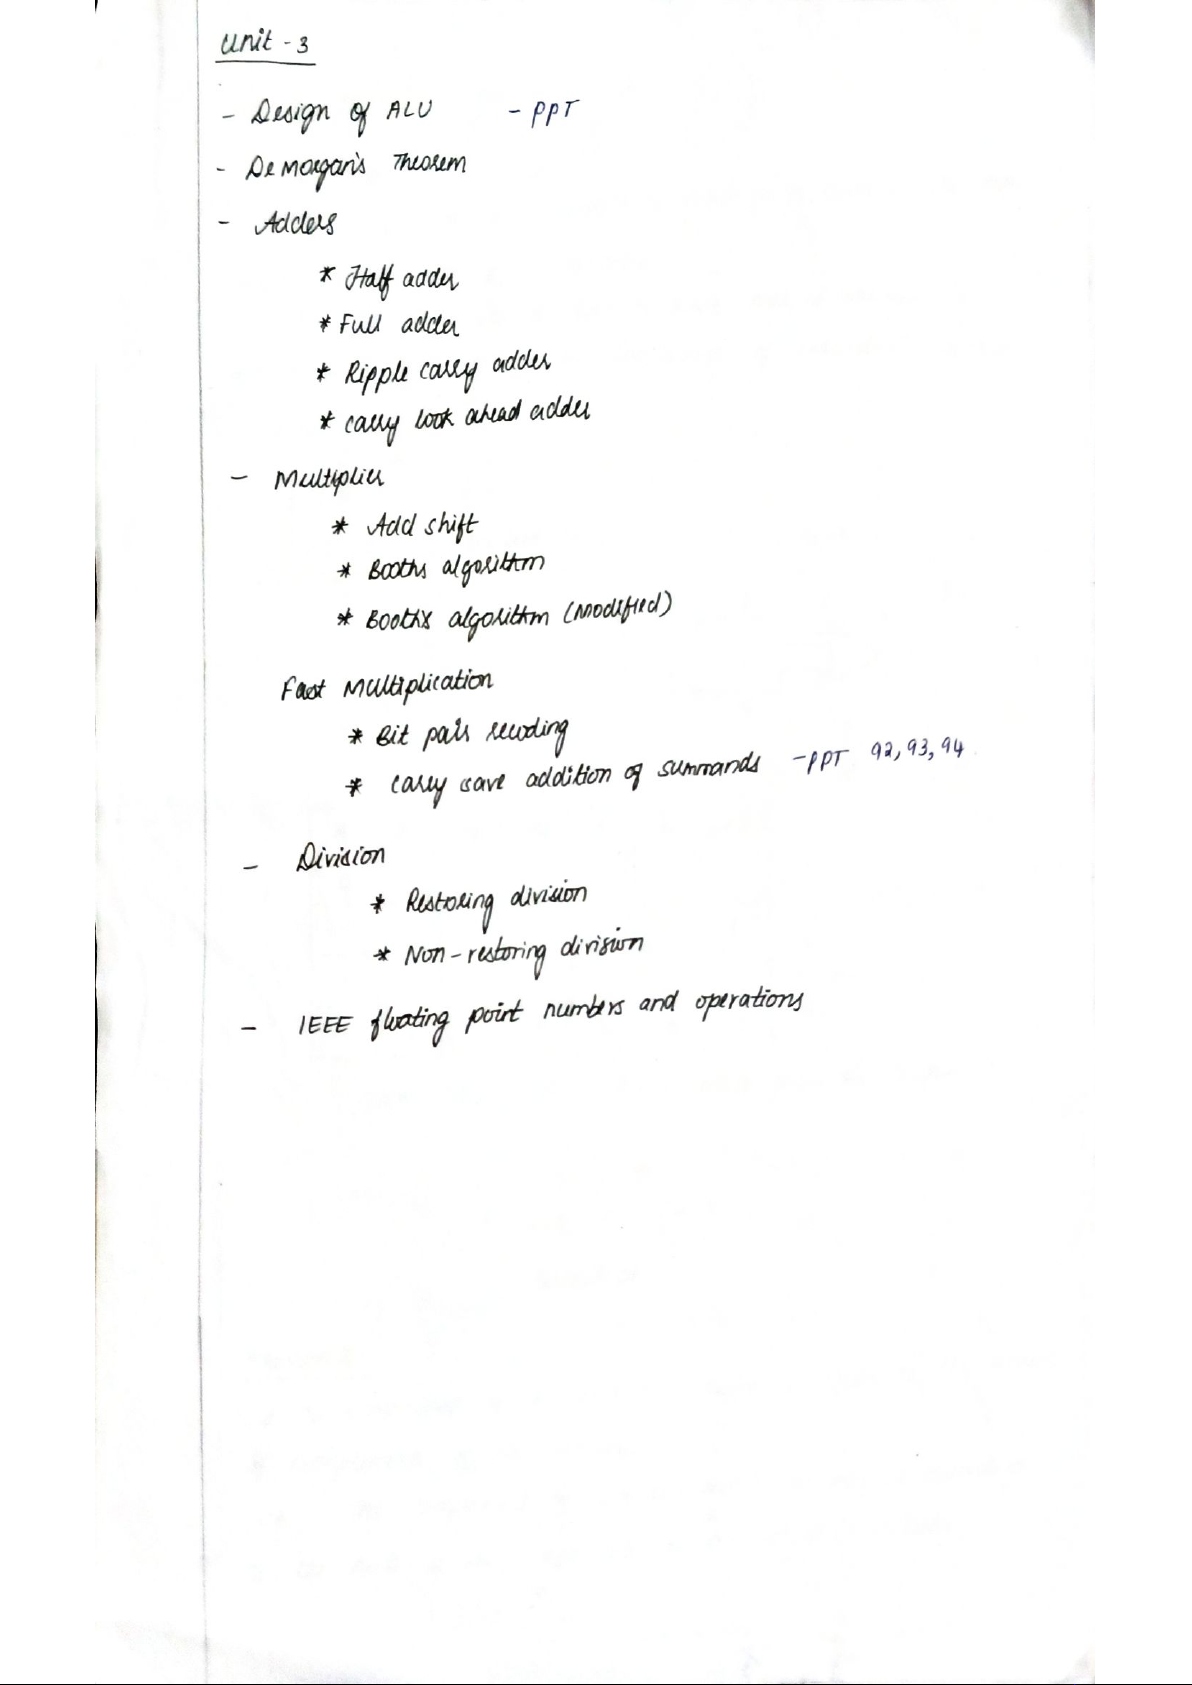 Unit - 3
- Design of ALU - PPT
- De Morgan's Theorem
- Adders
* Half adder
* Full adder
* Ripple carry adder
* carry look ahead adder
- Multiplier
* Add shift
* Booths algorithm
* Booth's algorithm (Modified)
Fast Multiplication
* Bit pair recoding
* carry save addition of summands - PPT 92, 93, 94
- Division
* Restoring division
* Non-restoring division
- IEEE floating point numbers and operations